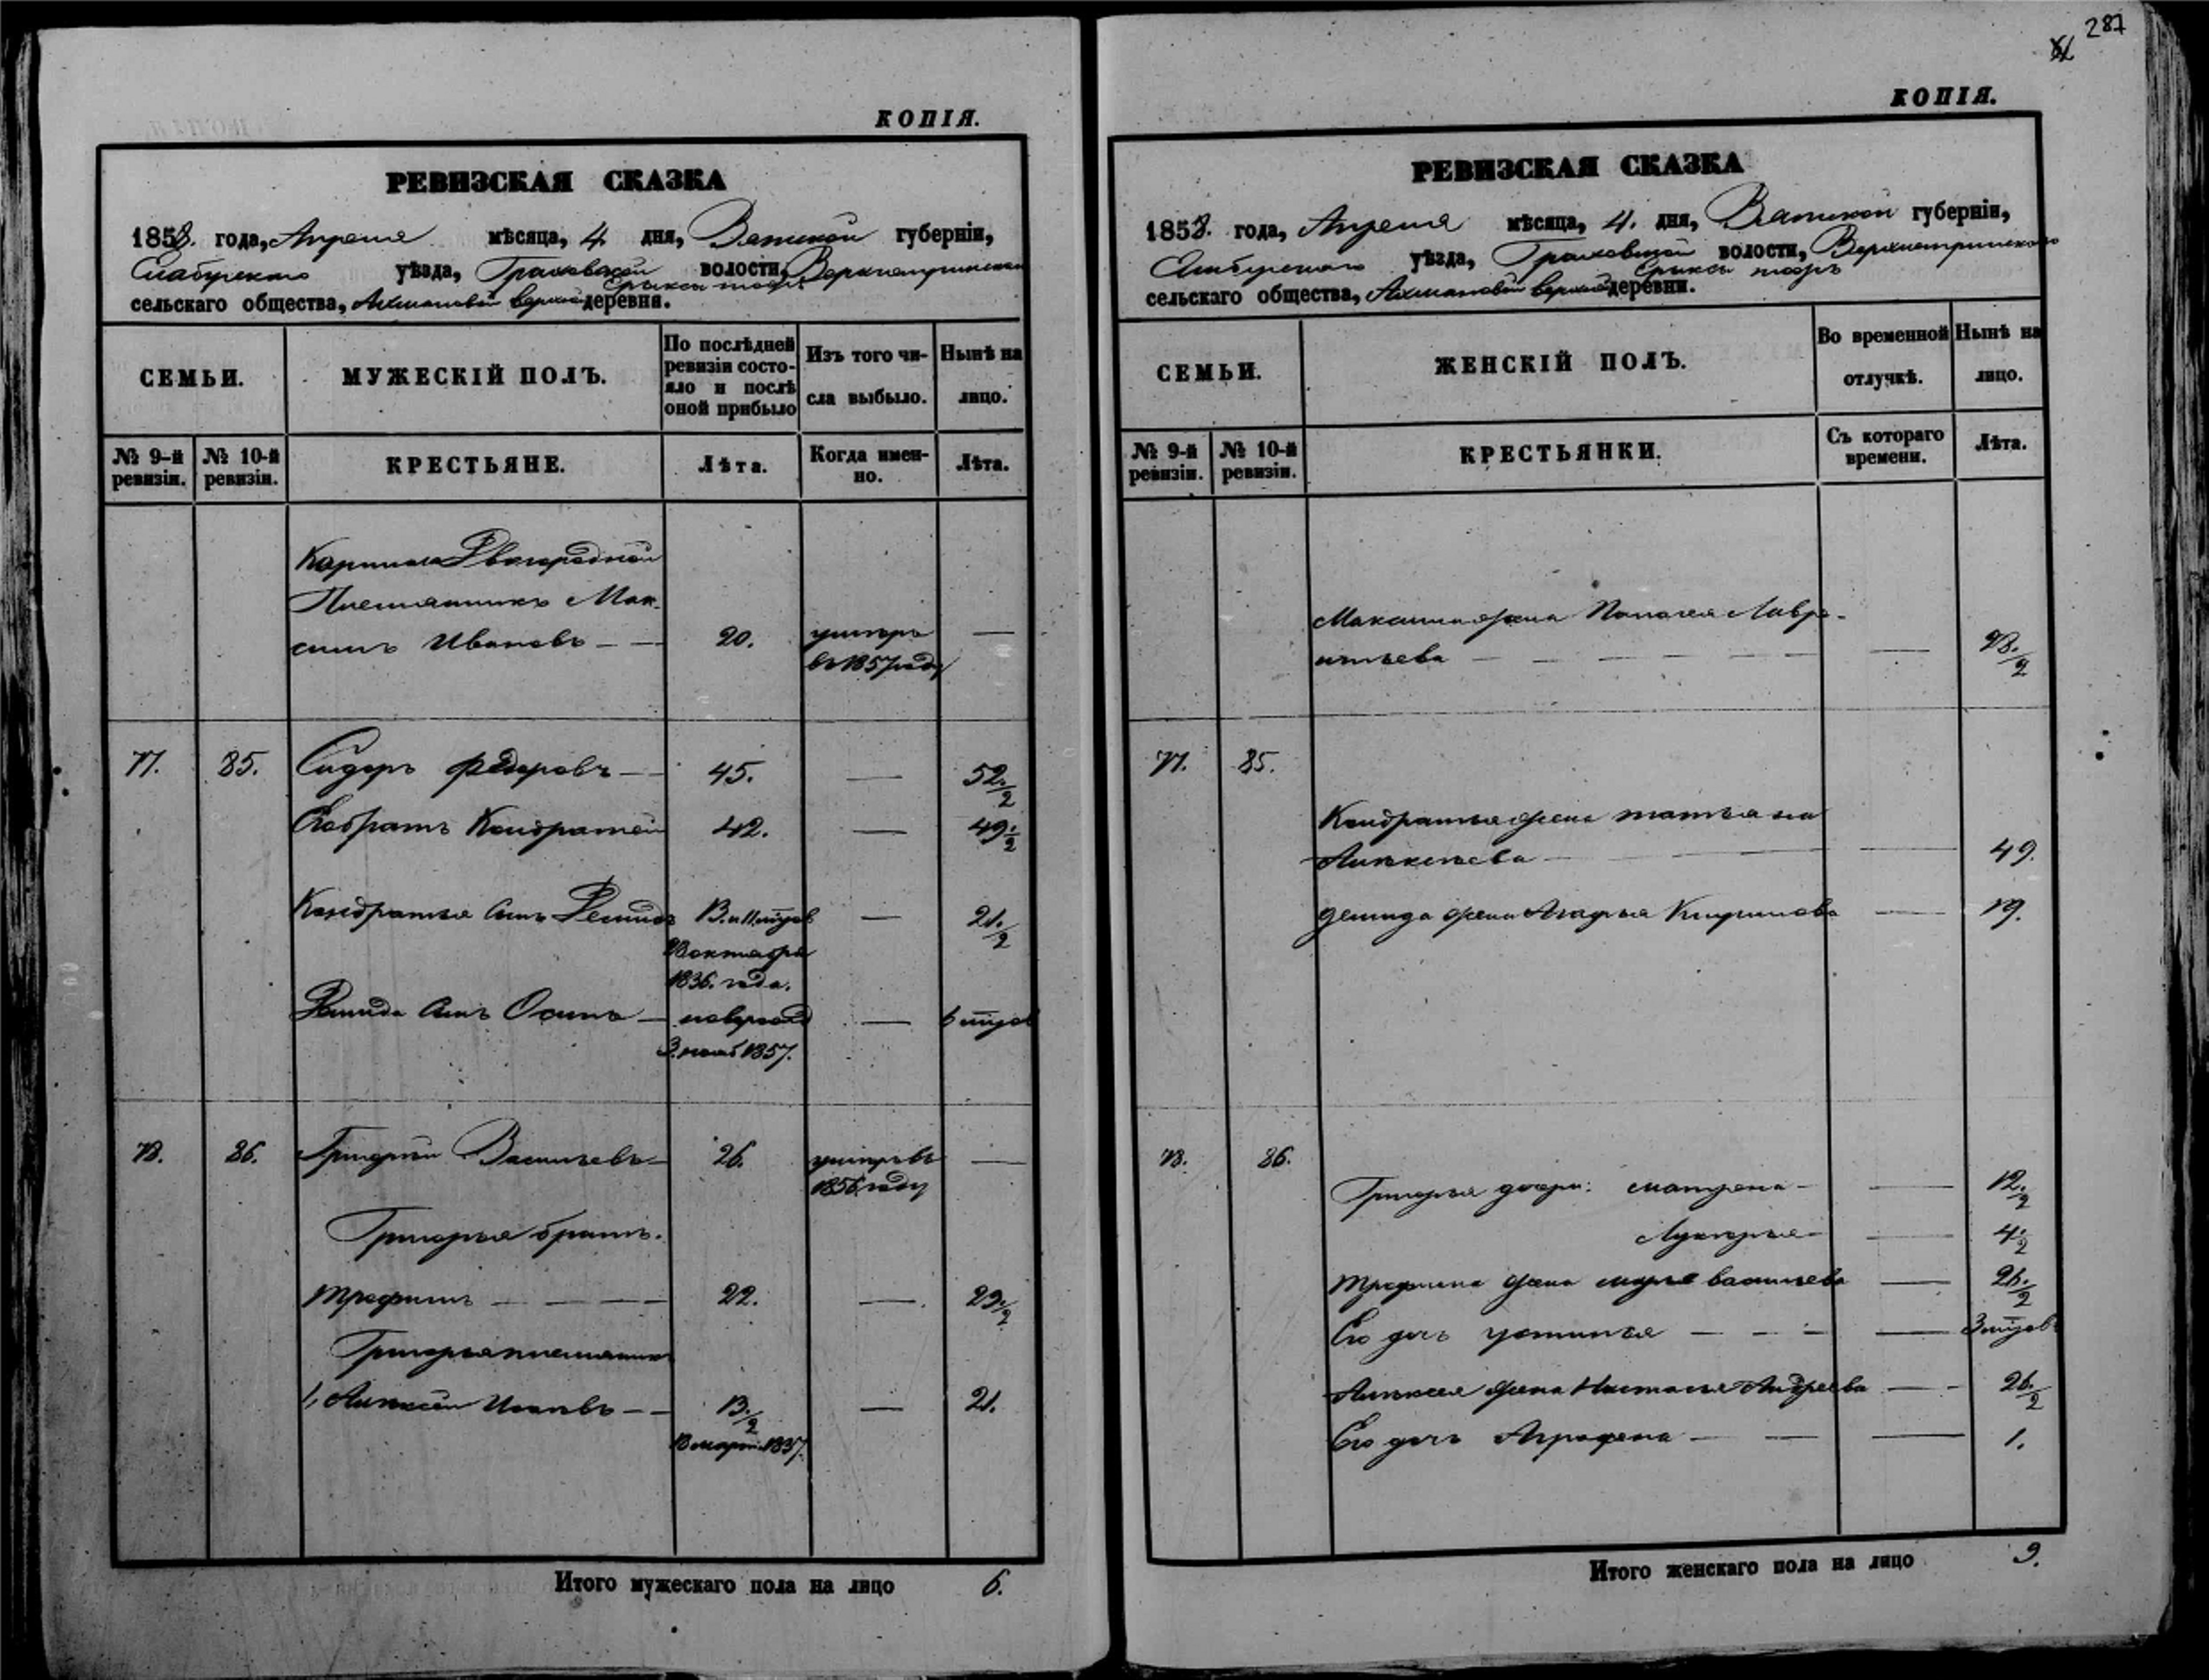 287
КОПІЯ.
РЕВИЗСКАЯ СКАЗКА
1858. года, Апреля мѣсяца, 4 дня, Вятской губерніи,
Елабужскаго уѣзда, Граховской волости,
сельскаго общества, деревня.
СЕМЬИ. МУЖЕСКІЙ ПОЛЪ. По послѣдней ревизіи состояло и послѣ оной прибыло Изъ того числа выбыло. Нынѣ на лицо.
№ 9-й ревизіи. № 10-й ревизіи. КРЕСТЬЯНЕ. Лѣта. Когда именно. Лѣта.
Двоюродной
Племянникъ Мак-
симъ Ивановъ — — 20. умеръ —
въ 1857 году
77. 85. Сидоръ Федоровъ — — 45. — 52 1/2
Его братъ Кондратей 42. — 49 1/2
Кондратья сынъ Демидъ — 21 1/2
октября
1836. года.
Демида сынъ Осипъ — —
3. нояб 1857.
78. 86. Григорій Васильевъ — 26. умеръ въ —
1856 году
Григорья братъ.
Трофимъ — — — 22. — 29 1/2
Григорья племянникъ
1, Алексѣй — — 13 1/2 — 21.
Итого мужескаго пола на лицо 6.
КОПІЯ.
РЕВИЗСКАЯ СКАЗКА
1858. года, Апреля мѣсяца, 4. дня, Вятской губерніи,
Елабужскаго уѣзда, Граховской волости,
сельскаго общества, деревни.
СЕМЬИ. ЖЕНСКІЙ ПОЛЪ. Во временной отлучкѣ. Нынѣ на лицо.
№ 9-й ревизіи. № 10-й ревизіи. КРЕСТЬЯНКИ. Съ котораго времени. Лѣта.
Максима жена Лавре-
нтьева — — — — — — 28 1/2
77. 85.
Кондратья жена татьяна
Алексѣева — — — 49.
демида жена Агафья Кирилова — 19.
78. 86.
Григорья дочери: матрена — — 12 1/2
Лукерья — — 4 1/2
трофима жена марья васильева — 26 1/2
Его дочь устинья — — — —
Алексея жена Настасья Андреева — 26 1/2
Его дочь Аграфена — — — 1.
Итого женскаго пола на лицо 9.